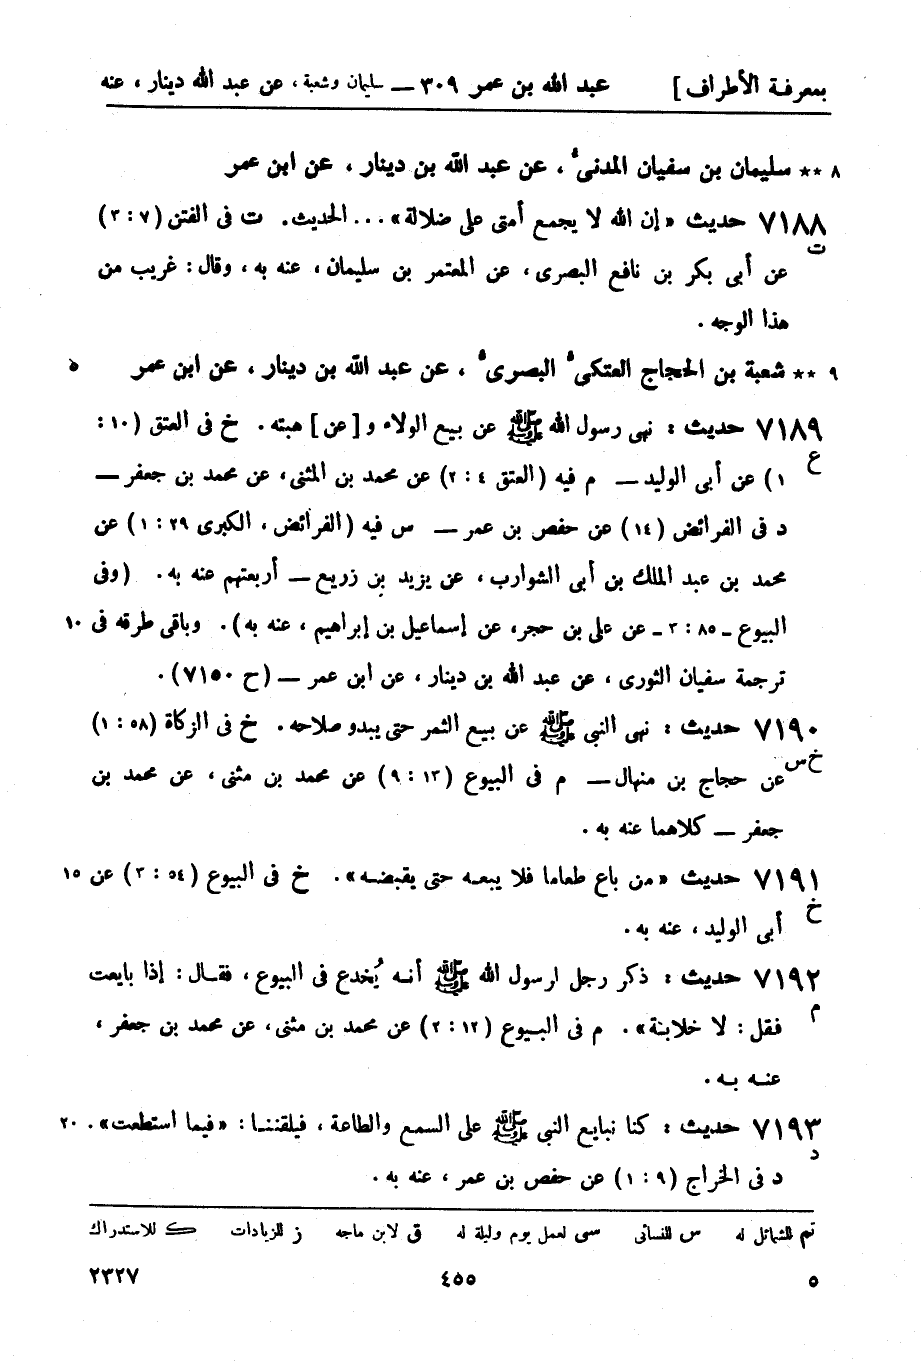 بمعرفة الأطراف] عبد الله بن عمر ٣٠٩ — سليمان وشعبة ، عن عبد الله دينار ، عنه
٨ ** سليمان بن سفيان المدنىُّ ، عن عبد الله بن دينار ، عن ابن عمر
٧١٨٨ حديث «إن الله لا يجمع أمتى على ضلالة» ... الحديث. ت فى الفتن (٧ : ٣)
ت
عن أبى بكر بن نافع البصرى ، عن المعتمر بن سليمان ، عنه به ، وقال : غريب من
هذا الوجه .
٩ ** شعبة بن الحجاج العتكىُّ البصرىُّ ، عن عبد الله بن دينار ، عن ابن عمر ٥
٧١٨٩ حديث : نهى رسول الله ﷺ عن بيع الولاء و [عن] هبته . خ فى العتق (١٠ :
ع
١) عن أبى الوليد — م فيه (العتق ٤ : ٢) عن محمد بن المثنى ، عن محمد بن جعفر —
د فى الفرائض (١٤) عن حفص بن عمر — س فيه (الفرائض ، الكبرى ٢٩ : ١) عن
محمد بن عبد الملك بن أبى الشوارب ، عن يزيد بن زريع — أربعتهم عنه به . (وفى
البيوع ـ ٨٥ : ٣ ـ عن على بن حجر ، عن إسماعيل بن إبراهيم ، عنه به) . وباقى طرقه فى ١٠
ترجمة سفيان الثورى ، عن عبد الله بن دينار ، عن ابن عمر — (ح ٧١٥٠) .
٧١٩٠ حديث : نهى النبى ﷺ عن بيع الثمر حتى يبدو صلاحه . خ فى الزكاة (٥٨ : ١)
خ س
عن حجاج بن منهال — م فى البيوع (١٣ : ٩) عن محمد بن مثنى ، عن محمد بن
جعفر — كلاهما عنه به .
٧١٩١ حديث «من باع طعاما فلا يبعه حتى يقبضه» . خ فى البيوع (٥٤ : ٣) عن ١٥
خ
أبى الوليد ، عنه به .
٧١٩٢ حديث : ذكر رجل لرسول الله ﷺ أنه يُخدع فى البيوع ، فقال : إذا بايعت
م
فقل : لا خلابة» . م فى البيوع (١٢ : ٢) عن محمد بن مثنى ، عن محمد بن جعفر ،
عنه به .
٧١٩٣ حديث : كنا نبايع النبى ﷺ على السمع والطاعة ، فيلقننا : «فيما استطعت» . ٢٠
د
د فى الخراج (٩ : ١) عن حفص بن عمر ، عنه به .
تم للشمائل له س للنسائى سى لعمل يوم وليلة له ق لابن ماجه ز للزيادات ك للاستدراك
٥ ٤٥٥ ٢٣٢٧